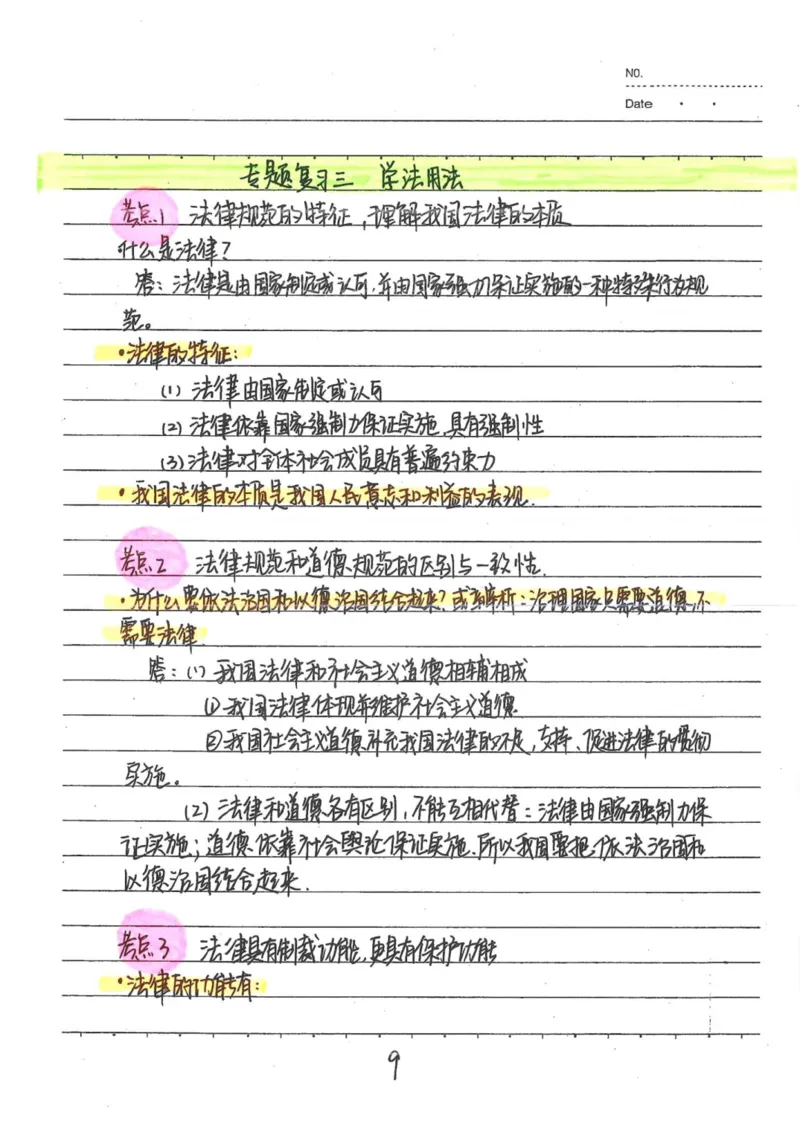 NO.
Date
专题复习三 学法用法
考点1 法律规范的特征,理解我国法律的本质
什么是法律?
答:法律是由国家制定或认可,并由国家强力保证实施的一种特殊行为规
范。
·法律的特征:
(1)法律由国家制定或认可
(2)法律依靠国家强制力保证实施,具有强制性
(3)法律对全体社会成员具有普遍约束力
·我国法律的本质是我国人民意志和利益的表现.
考点2 法律规范和道德规范的区别与一致性.
·为什么要依法治国和以德治国结合起来?或辨析:治理国家只需要道德,不
需要法律.
答:(1)我国法律和社会主义道德相辅相成
①我国法律体现并维护社会主义道德.
②我国社会主义道德补充我国法律的不足,支持、促进法律的贯彻
实施。
(2)法律和道德各有区别,不能互相代替:法律由国家强制力保
证实施;道德依靠社会舆论保证实施.所以我国要把依法治国和
以德治国结合起来.
考点3 法律具有制裁功能,更具有保护功能
·法律的功能有:
9